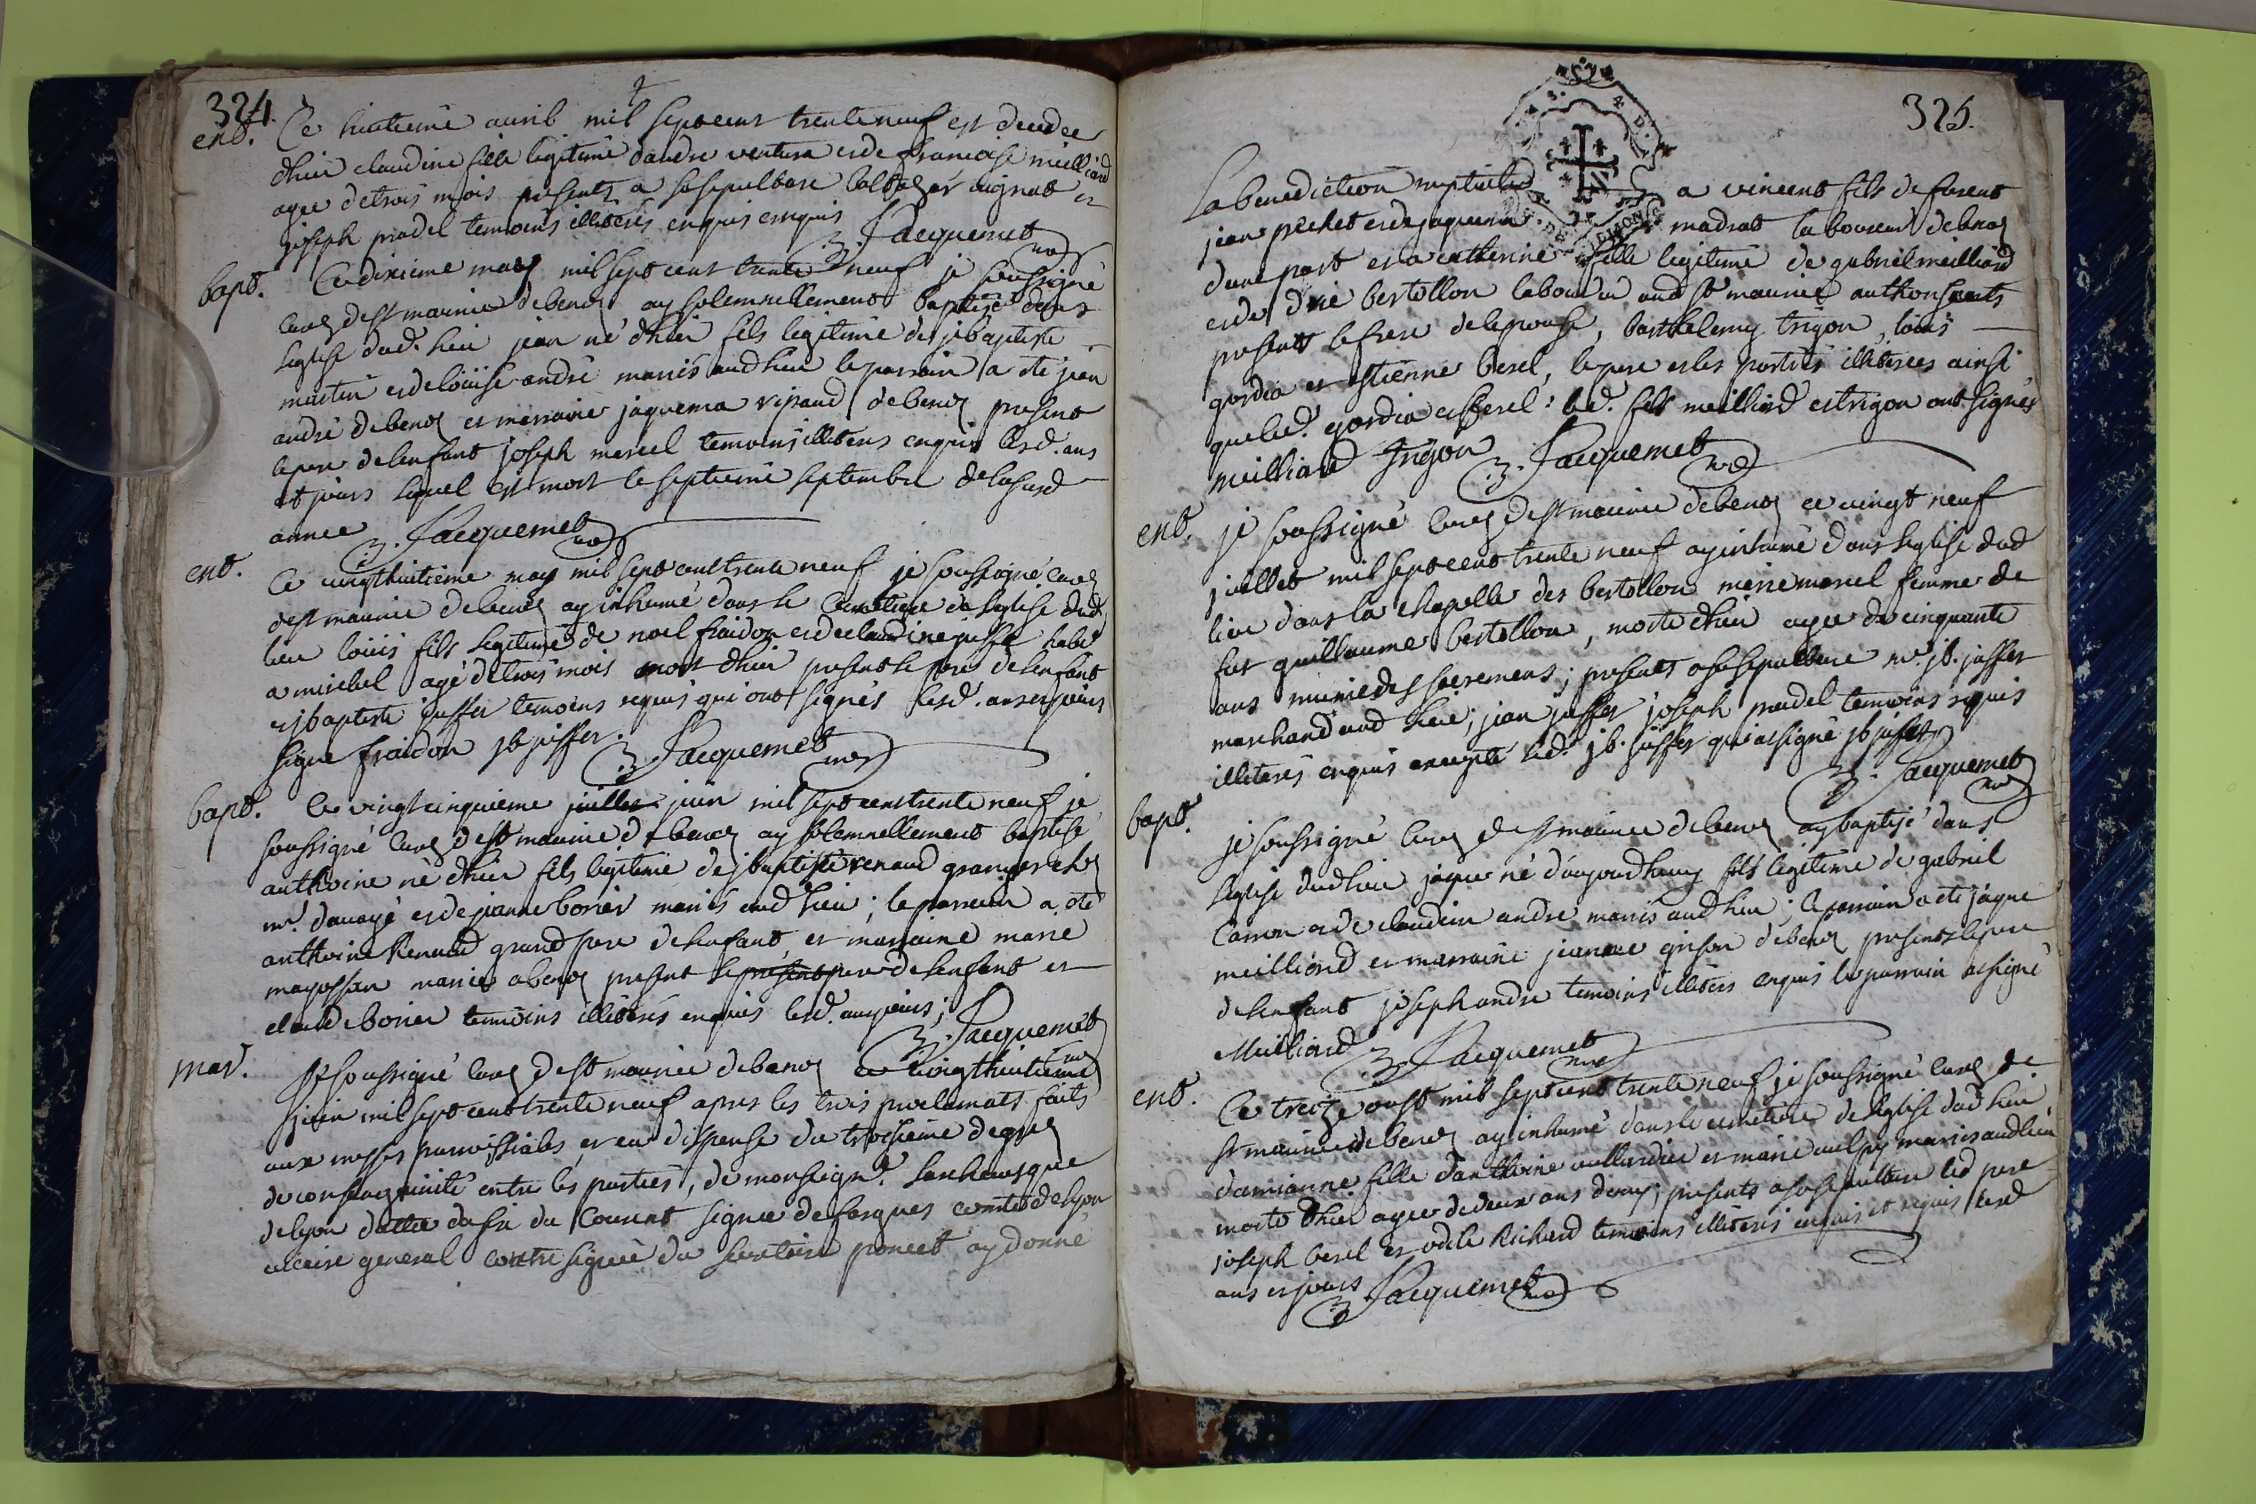 324.
ent. Ce huitieme avril mil sept cent trente neuf est decedee
d'hier claudine fille legitime d'andre ventura et de francoise meilliard
agee de trois mois presents a sa sepulture baltazar et
joseph pradel temoins illiteres enquis
Jacquemet
bapt. Ce dixieme may mil sept cent trente neuf je soussigné
curé de st maurice de benoz ay solemnellement baptisé dans
leglise dud. lieu jean né d'hier fils legitime de jbaptiste
martin et de loüise andré mariés aud lieu le parrain a eté jean
andré de benoz et marraine jaquema ripaud de benoz present
le pere de lenfant joseph marcel temoins illiteres enquis lesd. ans
et jours lequel est mort le septieme septembre de lasusd
annee Jacquemet
ent. Ce vingthuitieme may mil sept cent trente neuf je soussigné curé
de st maurice de benoz ay inhumé dans le cimetiere de leglise dud
lieu loüis fils legitime de noel fraidon et de claudine juffet habt
a mirebel agé de trois mois mort d'hier present le pere de lenfant
et jbaptiste juffet temoins requis qui ont signés lesd. ans et jours
signe fraidon jb juffet. Jacquemet
bapt. Ce vingtcinquieme juillet juin mil sept cent trente neuf je
soussigné curé de st maurice de benoz ay solemnellement baptisé
anthoine né d'hier fils legitime de jbaptiste renaud granger chez
mr. davayé et de jeanne borier mariés aud lieu; le parrain a eté
anthoine Renaud grand pere de lenfant et marraine marie
mariée a benoz present le present pere de lenfant et
claude borier temoins illiterés enquis lesd. ans et jours;
Jacquemet
mar. Je soussigné curé de st maurice de benoz ce vingthuitieme
juin mil sept cent trente neuf apres les trois proclamats faits
aux messes parroissiales, et eu dispense du troisieme degré
de consanguinité entre les parties, de monseignr. larcheveque
de lyon dattée du six du courant signée de fargues comte de lyon
vicaire general contresignée du secretaire poncet ay donné
325.
La benediction nuptiale a vincent fils de forent
jean pechet et de jaquema madrat laboureur de benoz
dune part et a catherine fille legitime de gabriel meilliard
et de bertollon laboureur aud st maurice
presents le frere de lepouse, barthelemy trigon, loüis
gordia et estienne berel, le pere et les parties illiterees ainsi
que led. gordia et berel; led. fils meilliard et trigon ont signés
meilliard trigon Jacquemet
ent. je soussigné curé de st maurice de benoz ce vingt neuf
juillet mil sept cent trente neuf ay inhumé dans leglise dud
lieu dans la chapelle des bertollon marie marcel femme de
fut guillaume bertollon, morte d'hier agee de cinquante
ans munie des sacremens; presents a sa sepulture mr. jb. juffet
marchand aud lieu; jean juffet joseph pradel temoins requis
illiterés enquis excepté led. jb. juffet qui a signé jb juffet
Jacquemet
bapt. je soussigné curé de st maurice de benoz ay baptisé dans
leglise dud lieu jaque né d'aujourdhuy fils legitime de gabriel
Carron et de claudine andre mariés aud lieu; le parrain a eté jaque
meilliard et marraine jeanne grison de benoz presents le pere
de lenfant joseph andre temoins illiteres enquis le parrain a signé
Meilliard Jacquemet
ent. Ce treize aoust mil sept cent trente neuf je soussigné curé de
st maurice de benoz ay inhumé dans le cimetiere de leglise dud lieu
damianne fille d'anthoine vullardier et marie vulpy mariés aud lieu
morte d'hier agee de deux ans demy; presents a sa sepulture led pere
joseph berel et odile Richard temoins illiterés enquis et requis lesd
ans et jours Jacquemet